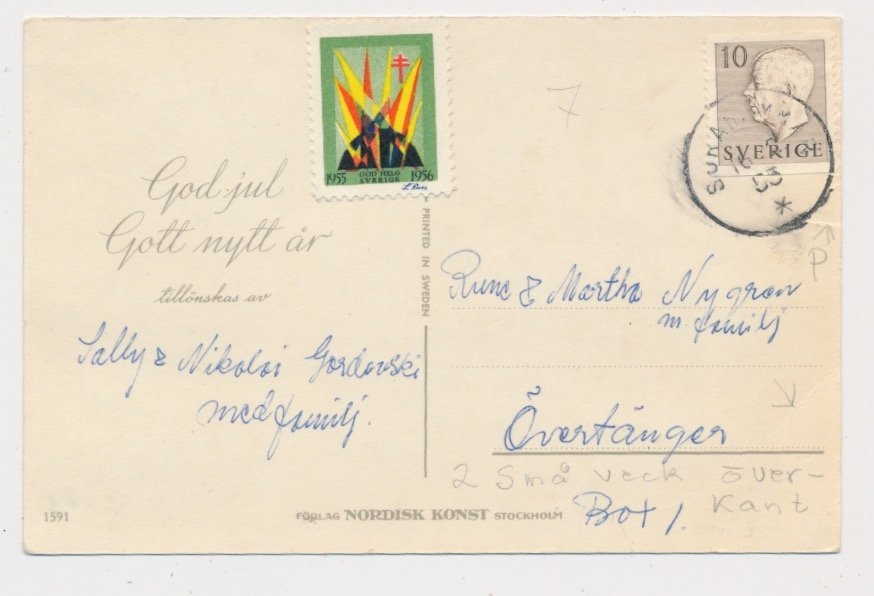 God jul
Gott nytt år
tillönskas av
Sally & Nikoloi Gordovski
med familj.
1591
1955 GOD HELG SVERIGE 1956
PRINTED IN SWEDEN
FÖRLAG NORDISK KONST STOCKHOLM
7
10
SVERIGE
P
Rune & Martha Nygren
m familj
Övertänger
2 små veck över-
kant
Box 1.